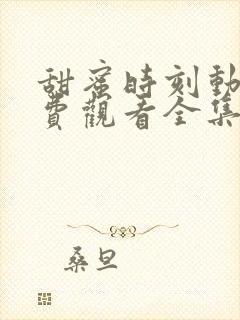 甜蜜時刻動
費觀看全集
桑旦